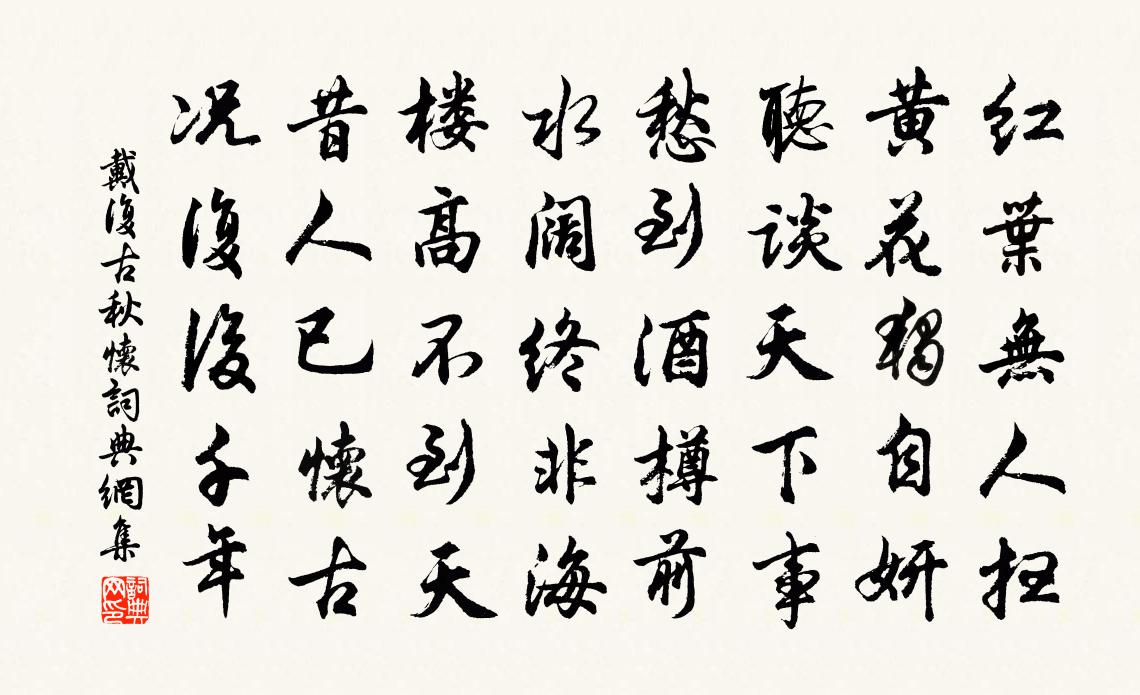 红葉無人扫
黄花獨自妍
聴谈天下事
愁到酒樽前
水阔终非海
楼高不到天
昔人已懷古
况復後千年
戴復古秋懷詞典網集
詞典网印